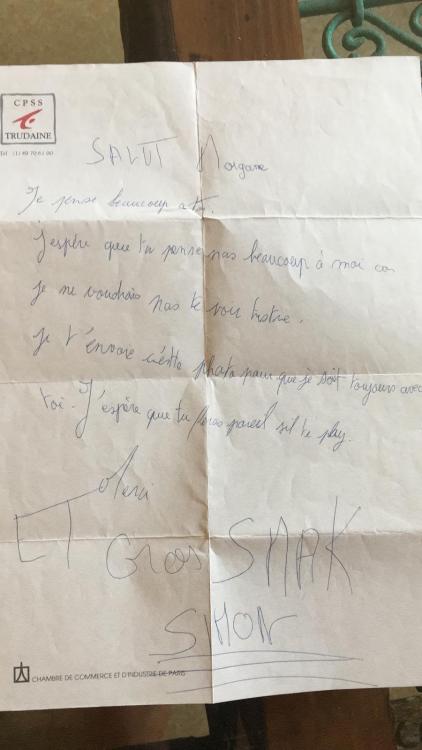 CPSS
TRUDAINE
Tél (1) 49 70 61 00
SALUT Morgane
Je pense beaucoup a toi.
J'espère que tu pense pas beaucoup à moi car
je ne voudrais pas te voir triste.
Je t'envoie cette photo pour que je soit toujours avec
toi. J'espère que tu feras pareil sil te play.
Merci
ET Gros SMAK
SIMON
CHAMBRE DE COMMERCE ET D'INDUSTRIE DE PARIS